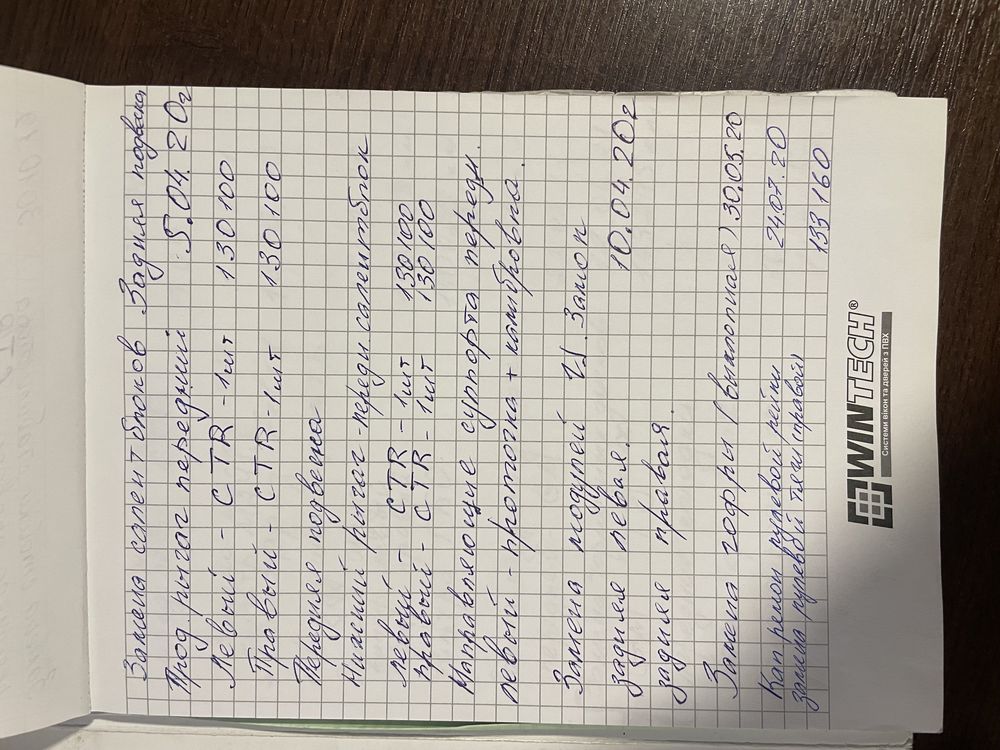 Замена салентблоков Задняя подвеска
Прод. рычаг передний 5.04.20г
Левый - CTR - 1шт 130100
Правый - CTR - 1шт 130100
Передняя подвеска
Нижний рычаг - перед салентблок
Левый - CTR - 1шт 130100
правый - CTR - 1шт 130100
Направляющие суппорта передн.
левый - проточка + калибровка.
Замена модулей Ц. Замок
задняя левая. 10.04.20г
задняя правая.
Замена гофры (выхлопная) 30.05.20
Кап ремон рулевой рейки 24.07.20
замена рулевой тяги (справой) 133 160
WINTECH®
Системи вікон та дверей з ПВХ